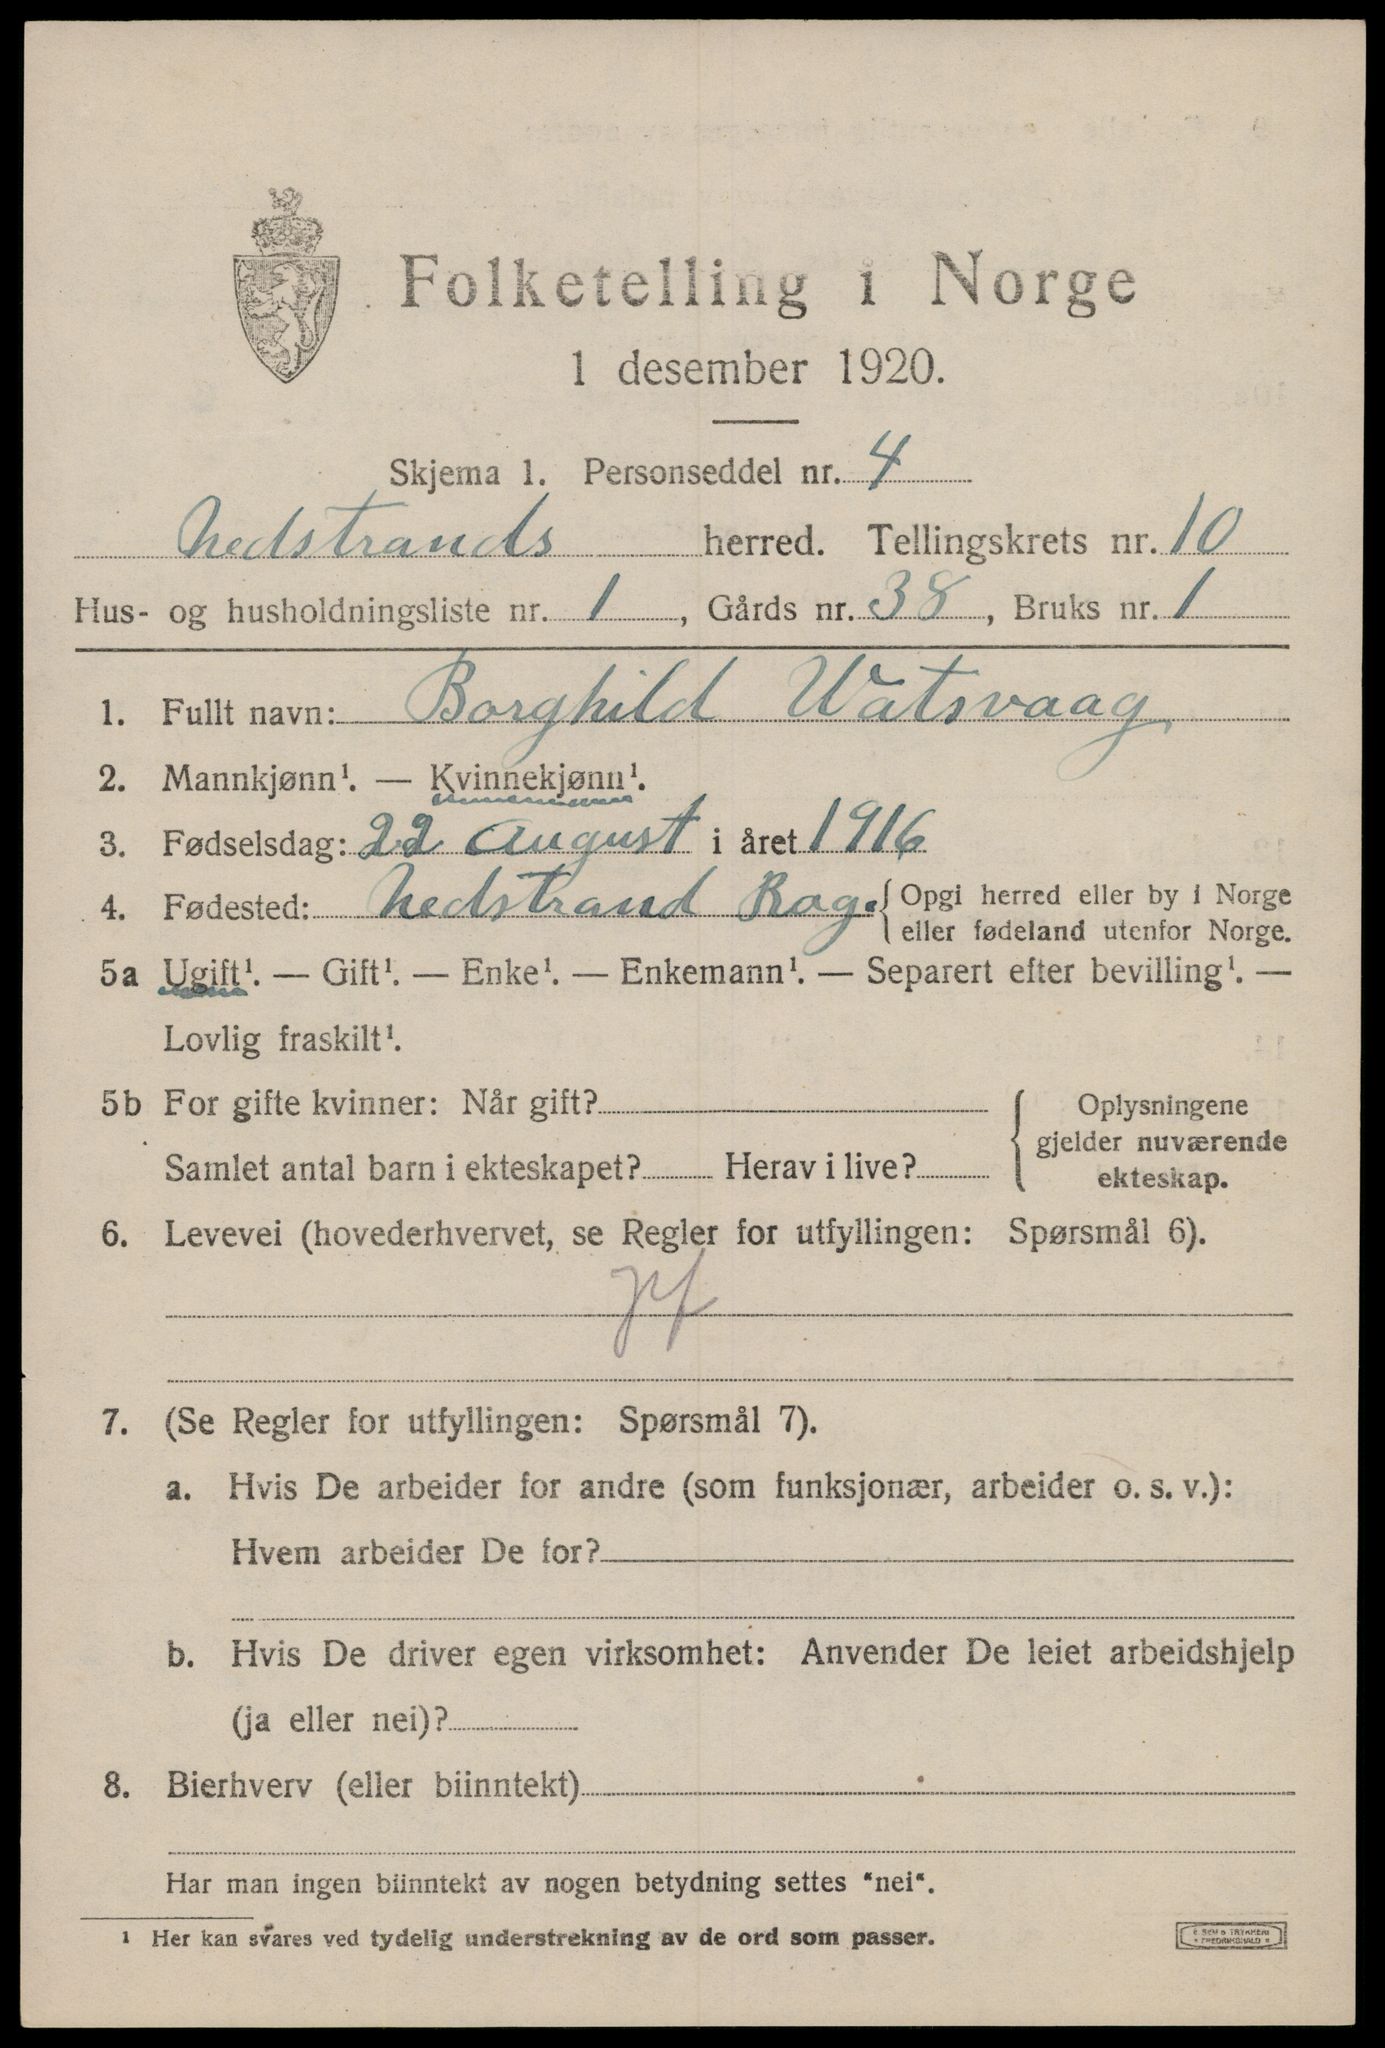 Folketelling i Norge
1 desember 1920.
Skjema 1. Personseddel nr. 4
Nedstrands herred. Tellingskrets nr. 10
Hus- og husholdningsliste nr. 1, Gårds nr. 38, Bruks nr. 1
1. Fullt navn: Borghild Watsvaag
2. Mannkjønn¹. — Kvinnekjønn¹.
3. Fødselsdag: 22 August i året 1916
4. Fødested: Nedstrand Rog. { Opgi herred eller by i Norge
eller fødeland utenfor Norge.
5a Ugift¹. — Gift¹. — Enke¹. — Enkemann¹. — Separert efter bevilling¹. —
Lovlig fraskilt¹.
5b For gifte kvinner: Når gift? { Oplysningene
gjelder nuværende
Samlet antal barn i ekteskapet? Herav i live? ekteskap.
6. Levevei (hovederhvervet, se Regler for utfyllingen: Spørsmål 6).
7. (Se Regler for utfyllingen: Spørsmål 7).
a. Hvis De arbeider for andre (som funksjonær, arbeider o. s. v.):
Hvem arbeider De for?
b. Hvis De driver egen virksomhet: Anvender De leiet arbeidshjelp
(ja eller nei)?
8. Bierhverv (eller biinntekt)
Har man ingen biinntekt av nogen betydning settes "nei".
¹ Her kan svares ved tydelig understrekning av de ord som passer.